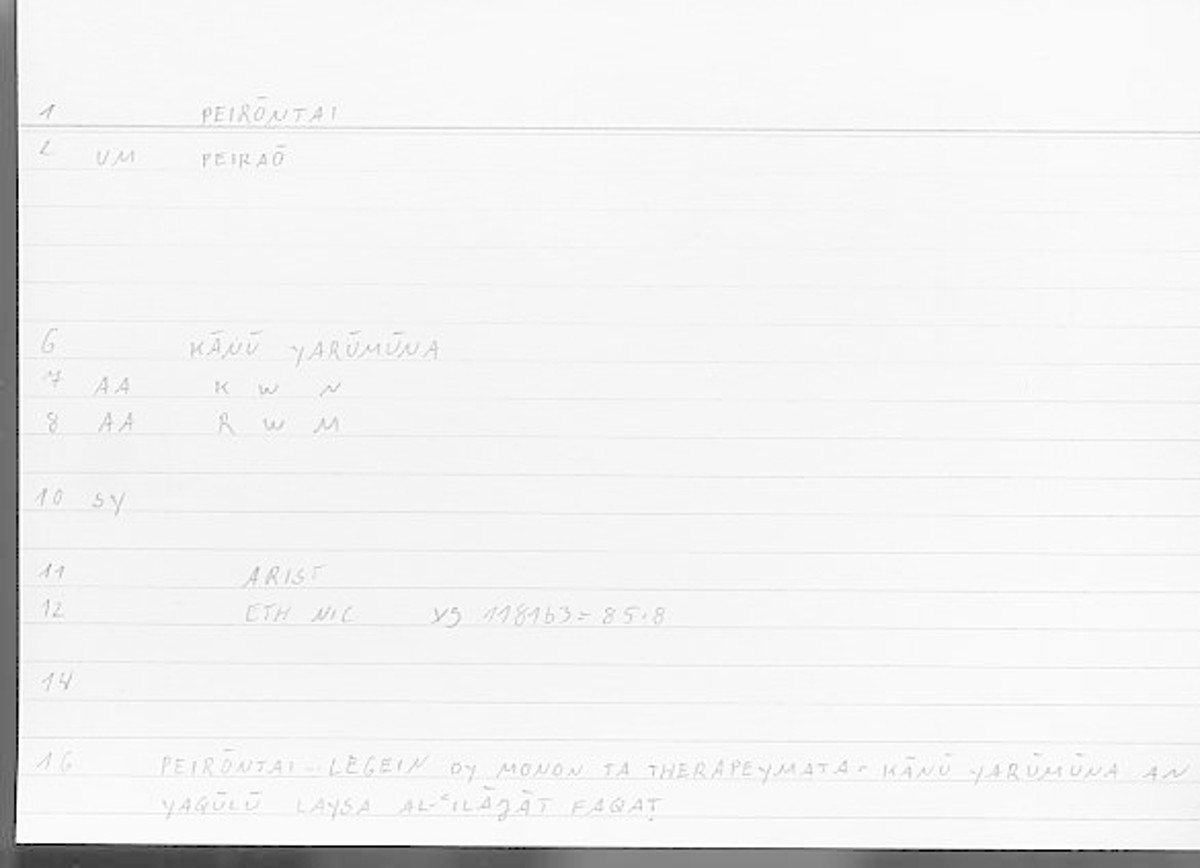 1 PEIRŌNTAI
2 VM PEIRAŌ
6 KĀNŪ YARŪMŪNA
7 AA K W N
8 AA R W M
10 SY
11 ARIST
12 ETH NIC 1181b3=85.8
14
16 PEIRŌNTAI...LEGEIN OY MONON TA THERAPEYMATA= KĀNŪ YARŪMŪNA AN
YAQŪLŪ LAYSA AL-ʿILĀǦĀT FAQAṬ